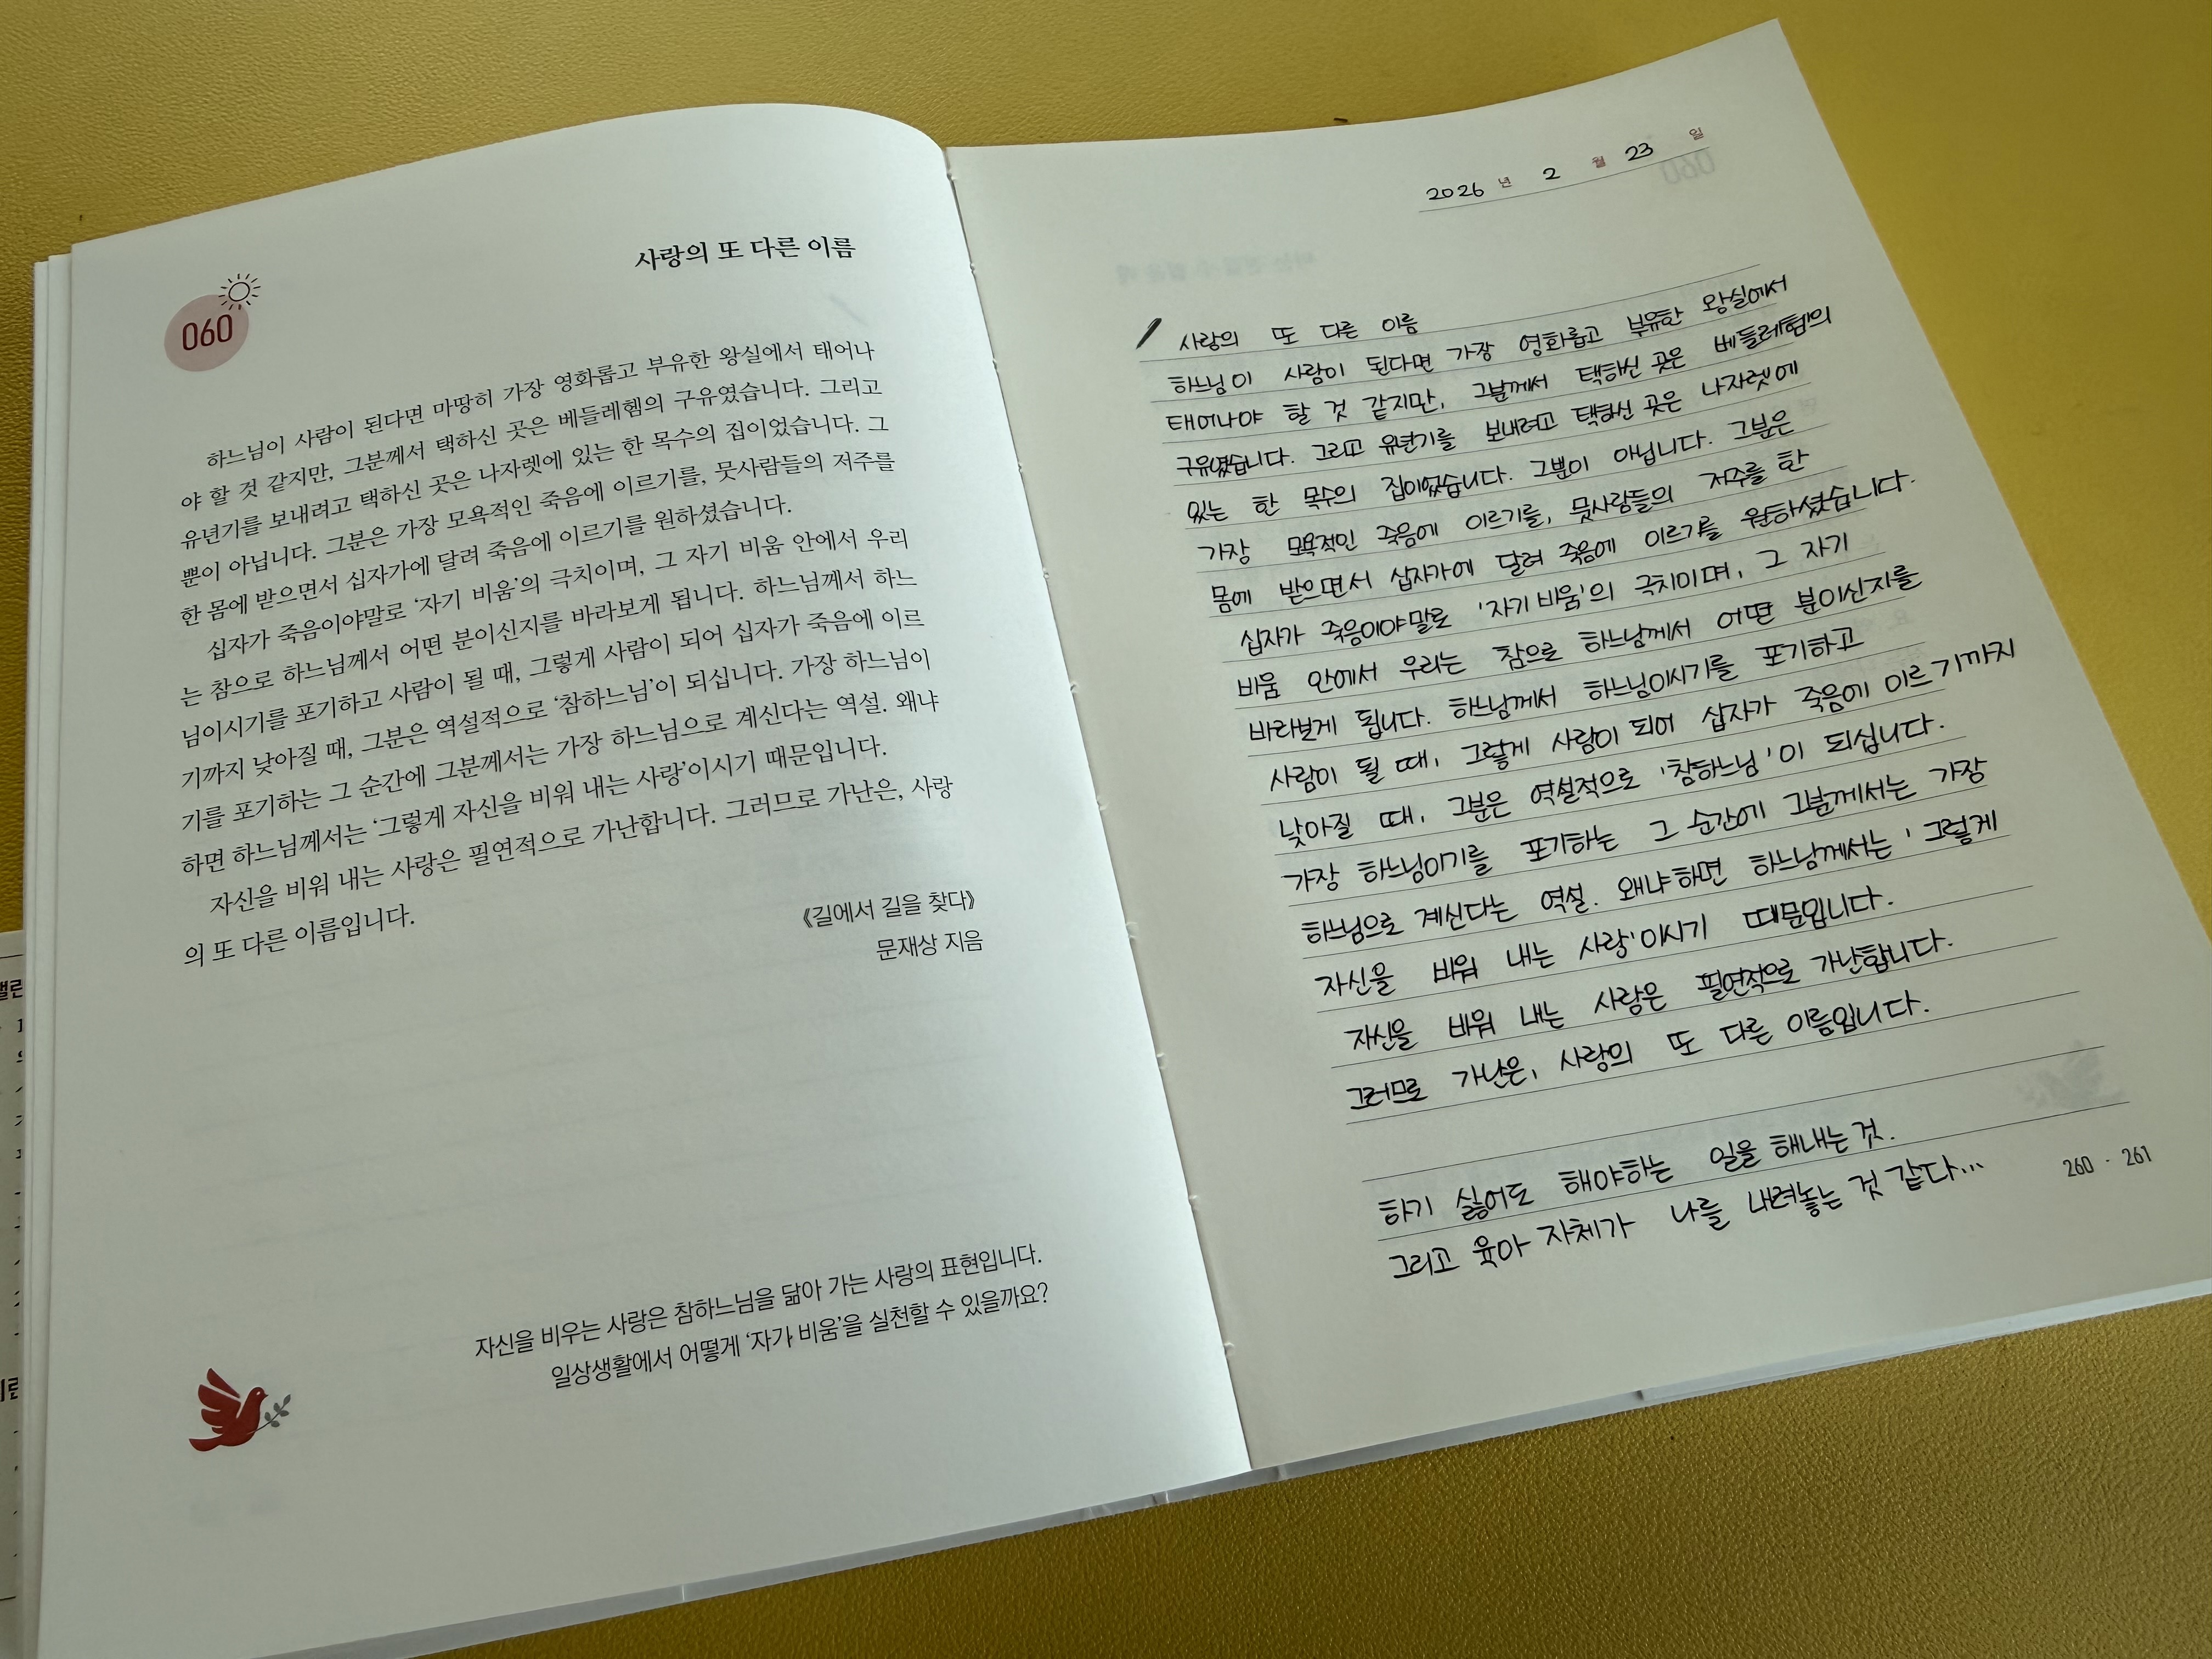 사랑의 또 다른 이름
060
하느님이 사람이 된다면 마땅히 가장 영화롭고 부유한 왕실에서 태어나
야 할 것 같지만, 그분께서 택하신 곳은 베들레헴의 구유였습니다. 그리고
유년기를 보내려고 택하신 곳은 나자렛에 있는 한 목수의 집이었습니다. 그
뿐이 아닙니다. 그분은 가장 모욕적인 죽음에 이르기를, 뭇사람들의 저주를
한 몸에 받으면서 십자가에 달려 죽음에 이르기를 원하셨습니다.
십자가 죽음이야말로 ‘자기 비움’의 극치이며, 그 자기 비움 안에서 우리
는 참으로 하느님께서 어떤 분이신지를 바라보게 됩니다. 하느님께서 하느
님이시기를 포기하고 사람이 될 때, 그렇게 사람이 되어 십자가 죽음에 이르
기까지 낮아질 때, 그분은 역설적으로 ‘참하느님’이 되십니다. 가장 하느님이
기를 포기하는 그 순간에 그분께서는 가장 하느님으로 계신다는 역설. 왜냐
하면 하느님께서는 ‘그렇게 자신을 비워 내는 사랑’이시기 때문입니다.
자신을 비워 내는 사랑은 필연적으로 가난합니다. 그러므로 가난은, 사랑
의 또 다른 이름입니다.
《길에서 길을 찾다》
문재상 지음
자신을 비우는 사랑은 참하느님을 닮아 가는 사랑의 표현입니다.
일상생활에서 어떻게 ‘자기 비움’을 실천할 수 있을까요?
2026 년 2 월 23 일
사랑의 또 다른 이름
하느님이 사람이 된다면 가장 영화롭고 부유한 왕실에서
태어나야 할 것 같지만, 그분께서 택하신 곳은 베들레헴의
구유였습니다. 그리고 유년기를 보내려고 택하신 곳은 나자렛에
있는 한 목수의 집이었습니다. 그뿐이 아닙니다. 그분은
가장 모욕적인 죽음에 이르기를, 뭇사람들의 저주를 한
몸에 받으면서 십자가에 달려 죽음에 이르기를 원하셨습니다.
십자가 죽음이야말로 '자기 비움'의 극치이며, 그 자기
비움 안에서 우리는 참으로 하느님께서 어떤 분이신지를
바라보게 됩니다. 하느님께서 하느님이시기를 포기하고
사람이 될 때, 그렇게 사람이 되어 십자가 죽음에 이르기까지
낮아질 때, 그분은 역설적으로 '참하느님'이 되십니다.
가장 하느님이기를 포기하는 그 순간에 그분께서는 가장
하느님으로 계신다는 역설. 왜냐하면 하느님께서는 '그렇게
자신을 비워 내는 사랑'이시기 때문입니다.
자신을 비워 내는 사랑은 필연적으로 가난합니다.
그러므로 가난은, 사랑의 또 다른 이름입니다.
하기 싫어도 해야하는 일을 해내는 것.
그리고 육아 자체가 나를 내려놓는 것 같다...
260 · 261